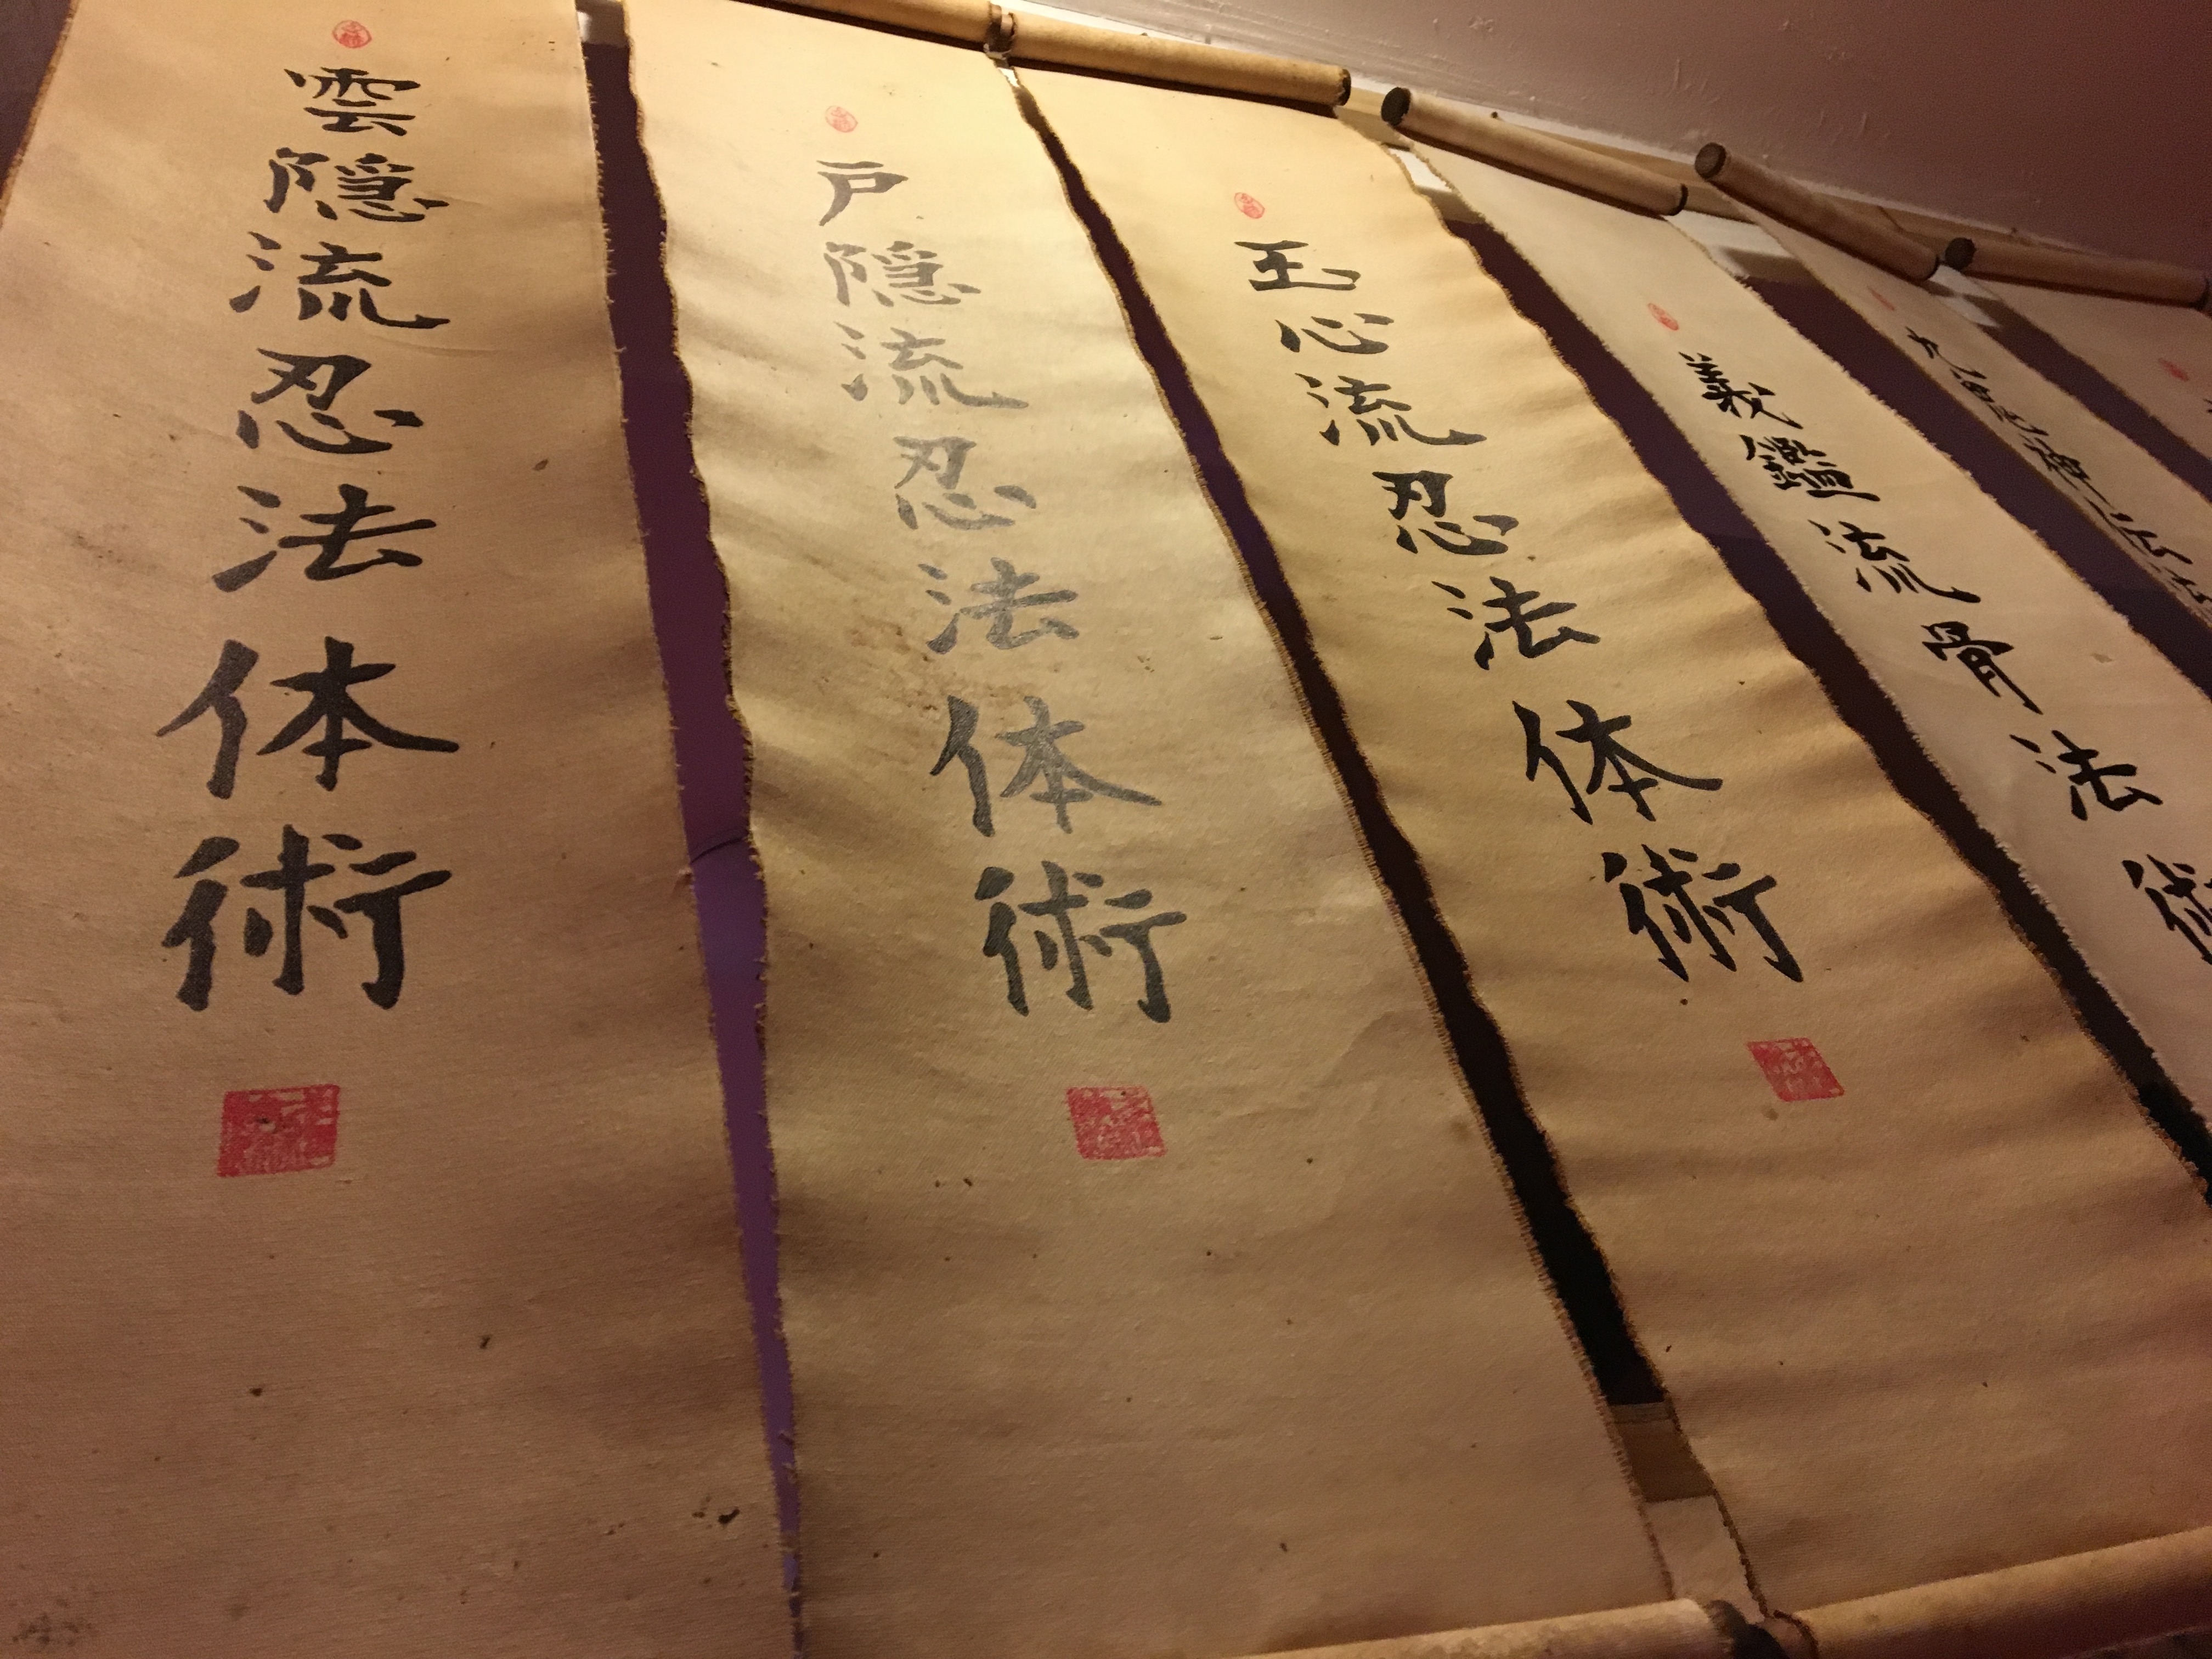 雲隠流忍法体術
戸隠流忍法体術
玉心流忍法体術
義鑑流骨法術